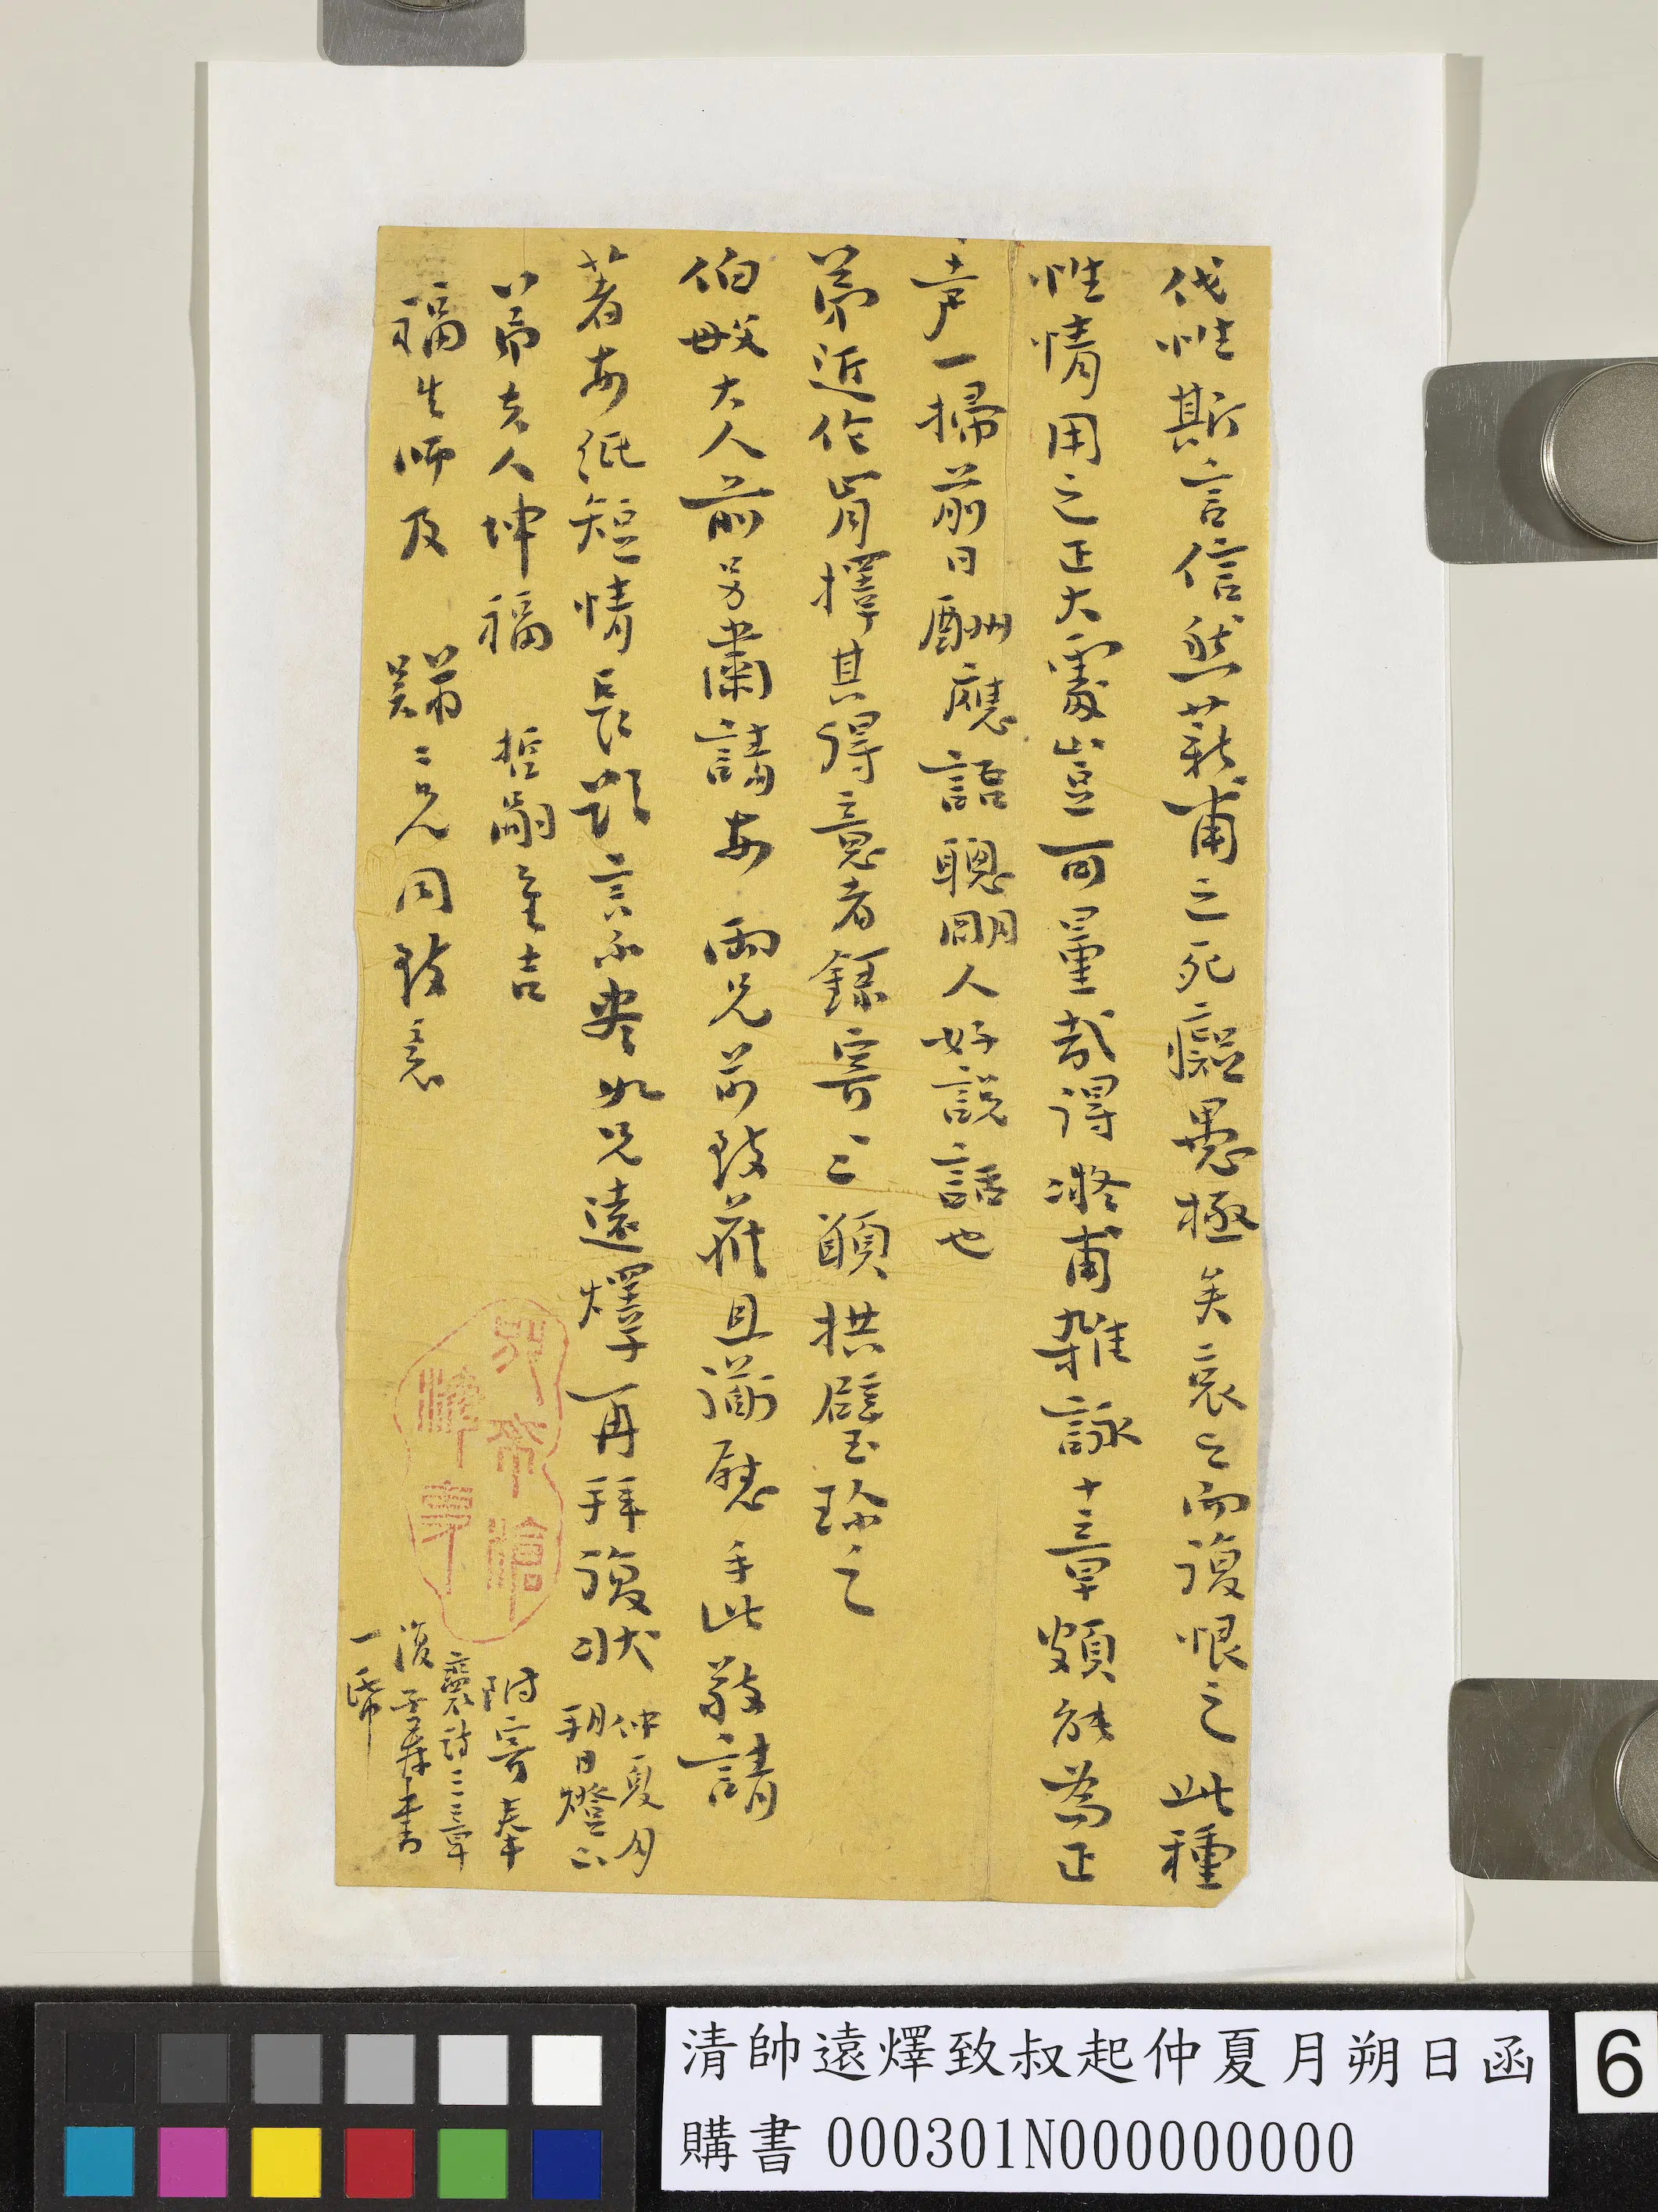 伐性斯言信然蓺甫之死癡愚極矣哀之而復恨之此種
性情用之正大處豈可量哉得漵甫雜詠十三章頗能為正
声一掃前日酬應語聰明人好說話也
弟近作肎擇其得意者錄寄一二願拱璧珍之
伯母大人前另肅請安 兩兄前致 且 慰手此敬請
著安紙短情長臨言不尽如兄遠燡再拜復狀 仲夏月朔日燈下
弟夫人坤福 哲嗣 吉
福生師及 二兄同致意
附寄奉
懷詩二三章
復 書
一帋
清帥遠燡致叔起仲夏月朔日函
購書 000301N000000000
6